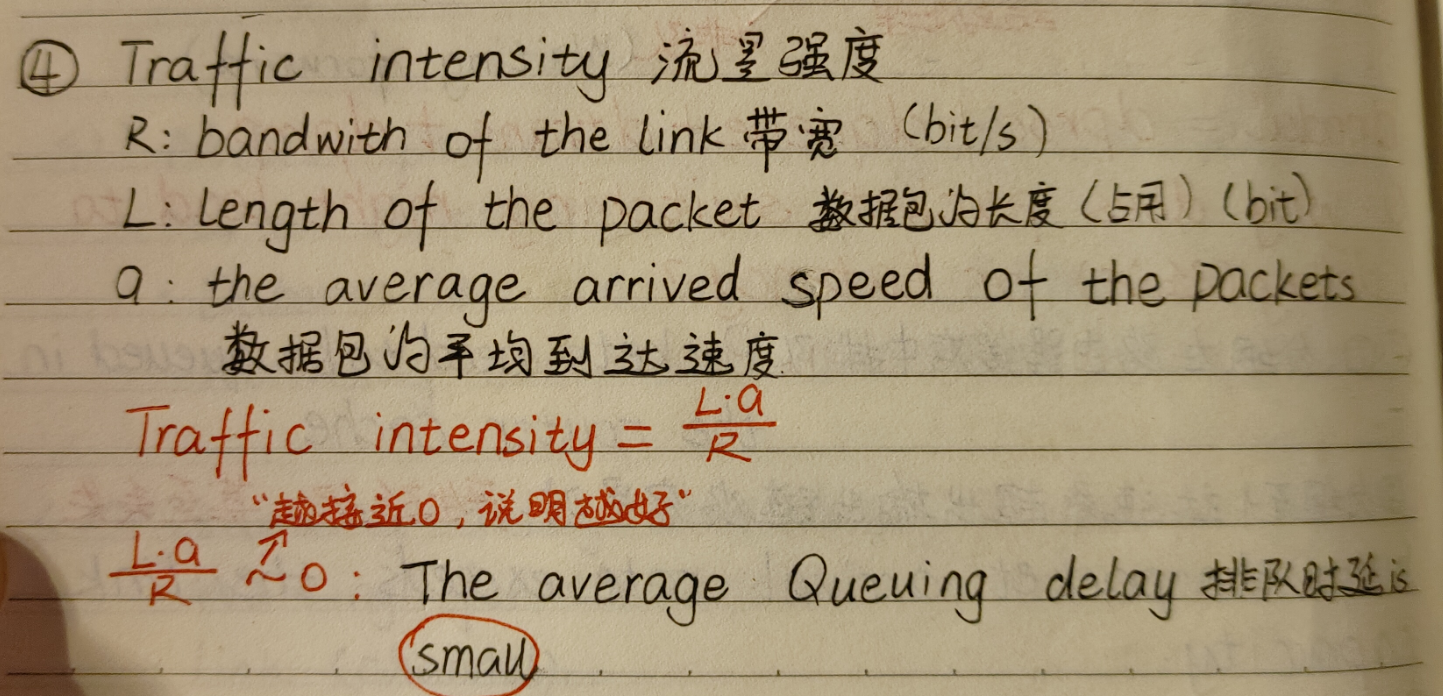 ④ Traffic intensity 流量强度
R: bandwith of the link 带宽 (bit/s)
L: Length of the packet 数据包的长度(占用)(bit)
a: the average arrived speed of the packets
数据包的平均到达速度
Traffic intensity = L·a/R
"越接近0,说明越好"
L·a/R ~ 0: The average Queuing delay 排队时延 is
small